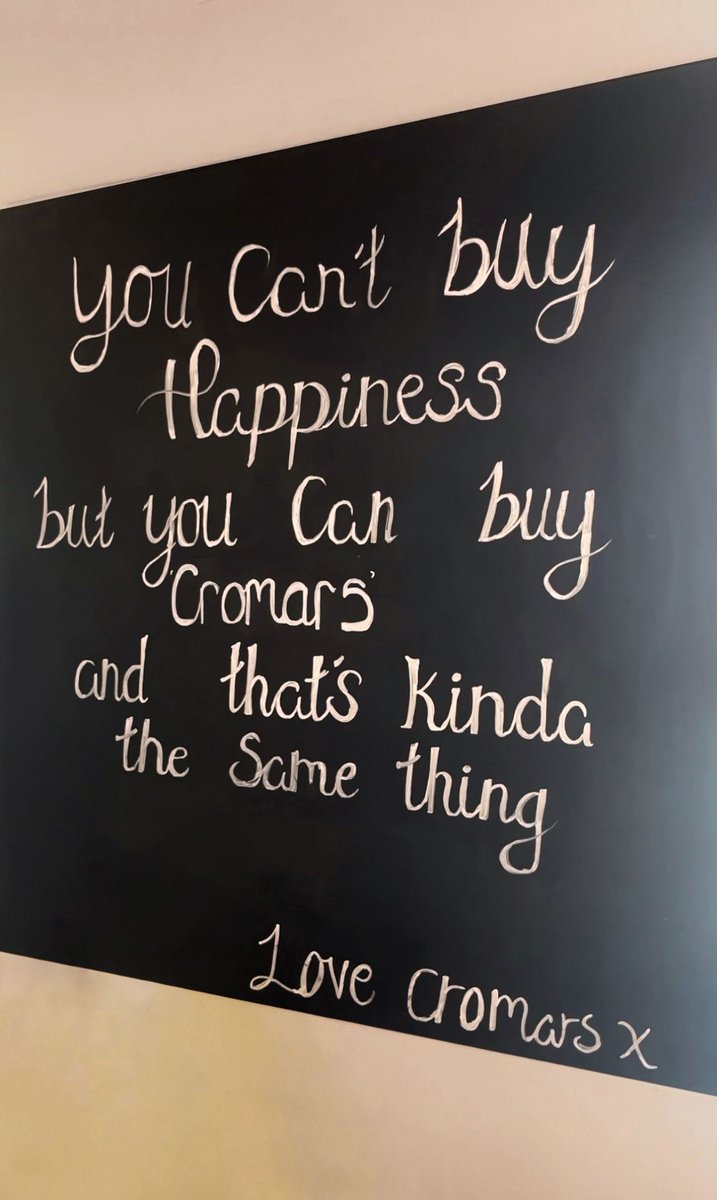 you Can't buy
Happiness
but you Can buy
'Cromars'
and that's kinda
the Same thing
Love Cromars x